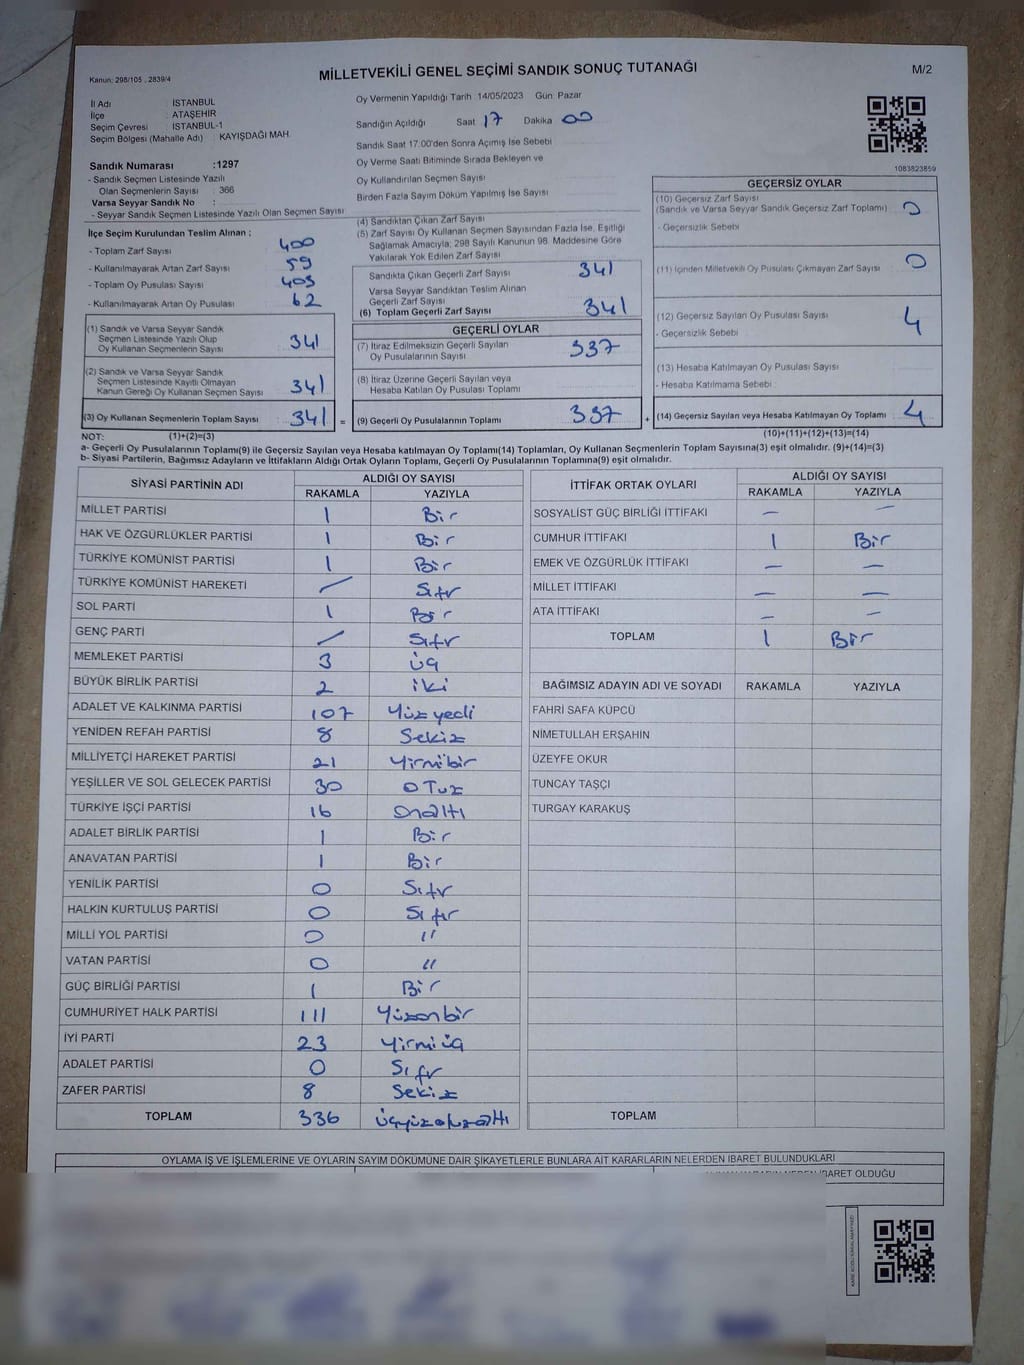 Kanun: 298/105 . 2839/4
MİLLETVEKİLİ GENEL SEÇİMİ SANDIK SONUÇ TUTANAĞI
M/2
İl Adı : İSTANBUL
İlçe : ATAŞEHİR
Seçim Çevresi : İSTANBUL-1
Seçim Bölgesi (Mahalle Adı) : KAYIŞDAĞI MAH.
Sandık Numarası :1297
- Sandık Seçmen Listesinde Yazılı
Olan Seçmenlerin Sayısı : 366
Varsa Seyyar Sandık No :
- Seyyar Sandık Seçmen Listesinde Yazılı Olan Seçmen Sayısı
Oy Vermenin Yapıldığı Tarih :14/05/2023 Gün: Pazar
Sandığın Açıldığı Saat 17 Dakika 00
Sandık Saat 17:00'den Sonra Açımış İse Sebebi
Oy Verme Saati Bitiminde Sırada Bekleyen ve
Oy Kullandırılan Seçmen Sayısı
Birden Fazla Sayım Döküm Yapılmış İse Sayısı
1083823859
İlçe Seçim Kurulundan Teslim Alınan ;
- Toplam Zarf Sayısı 400
- Kullanılmayarak Artan Zarf Sayısı 59
- Toplam Oy Pusulası Sayısı 403
- Kullanılmayarak Artan Oy Pusulası 62
(1) Sandık ve Varsa Seyyar Sandık
Seçmen Listesinde Yazılı Olup
Oy Kullanan Seçmenlerin Sayısı 341
(2) Sandık ve Varsa Seyyar Sandık
Seçmen Listesinde Kayıtlı Olmayan
Kanun Gereği Oy Kullanan Seçmen Sayısı 341
(3) Oy Kullanan Seçmenlerin Toplam Sayısı 341 =
(4) Sandıktan Çıkan Zarf Sayısı
(5) Zarf Sayısı Oy Kullanan Seçmen Sayısından Fazla İse, Eşitliği
Sağlamak Amacıyla; 298 Sayılı Kanunun 98. Maddesine Göre
Yakılarak Yok Edilen Zarf Sayısı
Sandıkta Çıkan Geçerli Zarf Sayısı 341
Varsa Seyyar Sandıktan Teslim Alınan
Geçerli Zarf Sayısı
(6) Toplam Geçerli Zarf Sayısı 341
GEÇERLİ OYLAR
(7) İtiraz Edilmeksizin Geçerli Sayılan
Oy Pusulalarının Sayısı 337
(8) İtiraz Üzerine Geçerli Sayılan veya
Hesaba Katılan Oy Pusulası Toplamı
(9) Geçerli Oy Pusulalarının Toplamı 337 +
GEÇERSİZ OYLAR
(10) Geçersiz Zarf Sayısı
(Sandık ve Varsa Seyyar Sandık Geçersiz Zarf Toplamı) 0
- Geçersizlik Sebebi
(11) İçinden Milletvekili Oy Pusulası Çıkmayan Zarf Sayısı 0
(12) Geçersiz Sayılan Oy Pusulası Sayısı 4
- Geçersizlik Sebebi
(13) Hesaba Katılmayan Oy Pusulası Sayısı
- Hesaba Katılmama Sebebi
(14) Geçersiz Sayılan veya Hesaba Katılmayan Oy Toplamı 4
NOT: (1)+(2)=(3) (10)+(11)+(12)+(13)=(14)
a- Geçerli Oy Pusulalarının Toplamı(9) ile Geçersiz Sayılan veya Hesaba katılmayan Oy Toplamı(14) Toplamları, Oy Kullanan Seçmenlerin Toplam Sayısına(3) eşit olmalıdır. (9)+(14)=(3)
b- Siyasi Partilerin, Bağımsız Adayların ve İttifakların Aldığı Ortak Oyların Toplamı, Geçerli Oy Pusulalarının Toplamına(9) eşit olmalıdır.
SİYASİ PARTİNİN ADI ALDIĞI OY SAYISI
RAKAMLA YAZIYLA
MİLLET PARTİSİ 1 Bir
HAK VE ÖZGÜRLÜKLER PARTİSİ 1 Bir
TÜRKİYE KOMÜNİST PARTİSİ 1 Bir
TÜRKİYE KOMÜNİST HAREKETİ / Sıfır
SOL PARTİ 1 Bir
GENÇ PARTİ / Sıfır
MEMLEKET PARTİSİ 3 üç
BÜYÜK BİRLİK PARTİSİ 2 iki
ADALET VE KALKINMA PARTİSİ 107 Yüz yedi
YENİDEN REFAH PARTİSİ 8 Sekiz
MİLLİYETÇİ HAREKET PARTİSİ 21 Yirmibir
YEŞİLLER VE SOL GELECEK PARTİSİ 30 OTuz
TÜRKİYE İŞÇİ PARTİSİ 16 Onaltı
ADALET BİRLİK PARTİSİ 1 Bir
ANAVATAN PARTİSİ 1 Bir
YENİLİK PARTİSİ 0 Sıfır
HALKIN KURTULUŞ PARTİSİ 0 Sıfır
MİLLİ YOL PARTİSİ 0 "
VATAN PARTİSİ 0 "
GÜÇ BİRLİĞİ PARTİSİ 1 Bir
CUMHURİYET HALK PARTİSİ 111 Yüzonbir
İYİ PARTİ 23 Yirmi üç
ADALET PARTİSİ 0 Sıfır
ZAFER PARTİSİ 8 Sekiz
TOPLAM 336 üçyüzotuzaltı
İTTİFAK ORTAK OYLARI ALDIĞI OY SAYISI
RAKAMLA YAZIYLA
SOSYALİST GÜÇ BİRLİĞİ İTTİFAKI — —
CUMHUR İTTİFAKI 1 Bir
EMEK VE ÖZGÜRLÜK İTTİFAKI — —
MİLLET İTTİFAKI — —
ATA İTTİFAKI — —
TOPLAM 1 Bir
BAĞIMSIZ ADAYIN ADI VE SOYADI RAKAMLA YAZIYLA
FAHRİ SAFA KÜPCÜ
NİMETULLAH ERŞAHİN
ÜZEYFE OKUR
TUNCAY TAŞÇI
TURGAY KARAKUŞ
TOPLAM
OYLAMA İŞ VE İŞLEMLERİNE VE OYLARIN SAYIM DÖKÜMÜNE DAİR ŞİKAYETLERLE BUNLARA AİT KARARLARIN NELERDEN İBARET BULUNDUKLARI
İBARET OLDUĞU